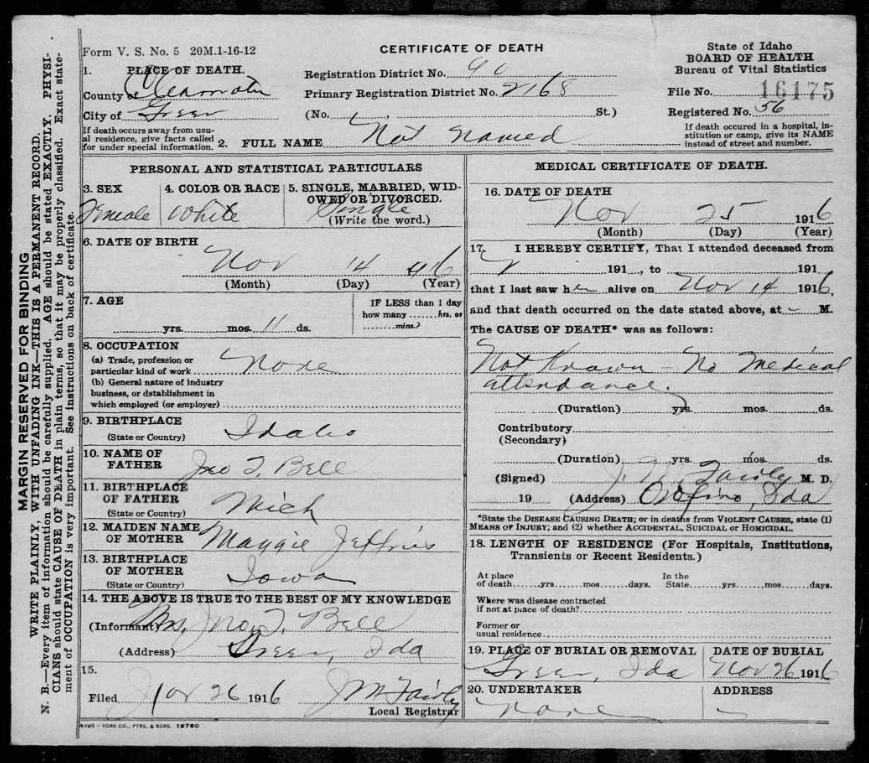 MARGIN RESERVED FOR BINDING
WRITE PLAINLY, WITH UNFADING INK—THIS IS A PERMANENT RECORD.
N. B.—Every item of information should be carefully supplied. AGE should be stated EXACTLY. PHYSI-
CIANS should state CAUSE OF DEATH in plain terms, so that it may be properly classified. Exact state-
ment of OCCUPATION is very important. See instructions on back of certificate.
Form V. S. No. 5 20M.1-16-12
CERTIFICATE OF DEATH
State of Idaho
BOARD OF HEALTH
Bureau of Vital Statistics
1. PLACE OF DEATH.
County of Clearwater
City of Greer
If death occurs away from usu-
al residence, give facts called
for under special information.
Registration District No. 90
Primary Registration District No. 2168
(No. St.)
File No. 16175
Registered No. 56
If death occured in a hospital, in-
stitution or camp, give its NAME
instead of street and number.
2. FULL NAME Not Named
PERSONAL AND STATISTICAL PARTICULARS
3. SEX
Female
4. COLOR OR RACE
White
5. SINGLE, MARRIED, WID-
OWED OR DIVORCED.
Single
(Write the word.)
6. DATE OF BIRTH
Nov 14 916
(Month) (Day) (Year)
7. AGE
yrs. mos. 11 ds.
IF LESS than 1 day
how many hrs. or
mins.?
8. OCCUPATION
(a) Trade, profession or
particular kind of work None
(b) General nature of industry
business, or dstablishment in
which employed (or employer)
9. BIRTHPLACE
(State or Country) Idaho
10. NAME OF
FATHER Jno T. Bell
11. BIRTHPLACE
OF FATHER
(State or Country) Mich
12. MAIDEN NAME
OF MOTHER Maggie Jeffries
13. BIRTHPLACE
OF MOTHER
(State or Country) Iowa
14. THE ABOVE IS TRUE TO THE BEST OF MY KNOWLEDGE
(Informant) Mrs. Jno. T. Bell
(Address) Greer, Ida
15.
Filed Nov 26 1916 J M Fairly
Local Registrar
SYMS - YORK CO., PTRS. & BDRS. 19760
MEDICAL CERTIFICATE OF DEATH.
16. DATE OF DEATH
Nov 25 1916
(Month) (Day) (Year)
17. I HEREBY CERTIFY, That I attended deceased from
191 , to 191
that I last saw her alive on Nov 14 1916,
and that death occurred on the date stated above, at - M.
The CAUSE OF DEATH* was as follows:
Not Known - No Medical
attendance.
(Duration) yrs. mos. ds.
Contributory
(Secondary)
(Duration) yrs. mos. ds.
(Signed) J. M. Fairly M. D.
19 (Address) Orofino, Ida
*State the DISEASE CAUSING DEATH; or in deaths from VIOLENT CAUSES, state (1)
MEANS OF INJURY; and (2) whether ACCIDENTAL, SUICIDAL or HOMICIDAL.
18. LENGTH OF RESIDENCE (For Hospitals, Institutions,
Transients or Recent Residents.)
At place
of death yrs. mos. days.
In the
State yrs. mos. days.
Where was disease contracted
if not at place of death?
Former or
usual residence
19. PLACE OF BURIAL OR REMOVAL
Greer, Ida
DATE OF BURIAL
Nov 26 1916
20. UNDERTAKER
None
ADDRESS
-